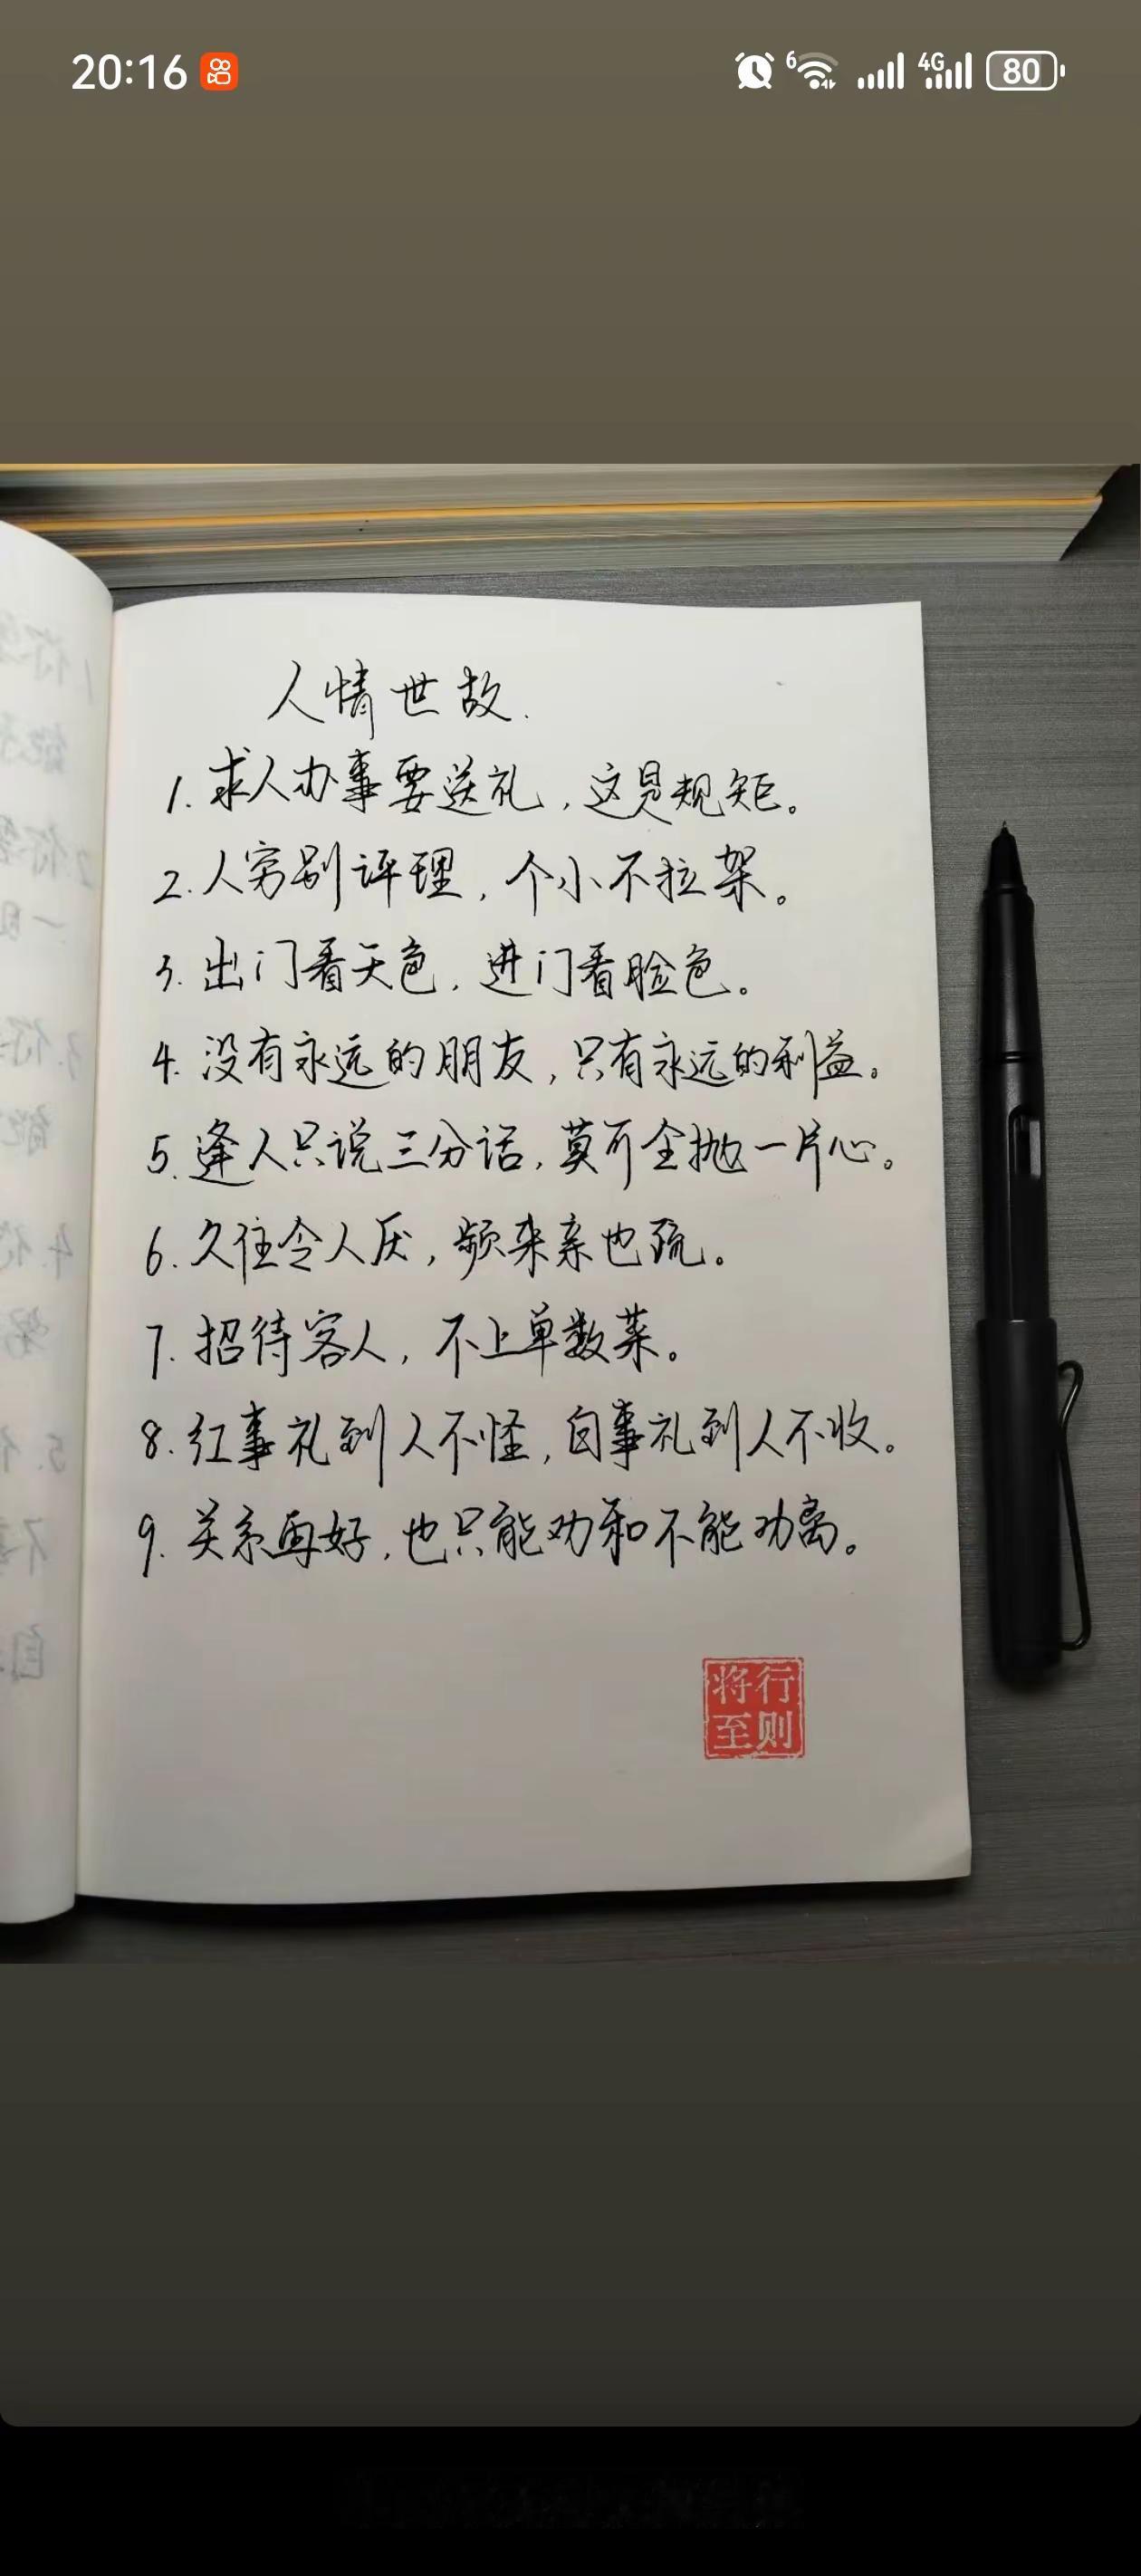 20:16
6
4G
80
人情世故.
1.求人办事要送礼,这是规矩。
2.人穷别评理,个小不拉架。
3.出门看天色,进门看脸色。
4.没有永远的朋友,只有永远的利益。
5.逢人只说三分话,莫可全抛一片心。
6.久住令人厌,频来亲也疏。
7.招待客人,不上单数菜。
8.红事礼到人不怪,白事礼到人不收。
9.关系再好,也只能劝和不能劝离。
将行
至则